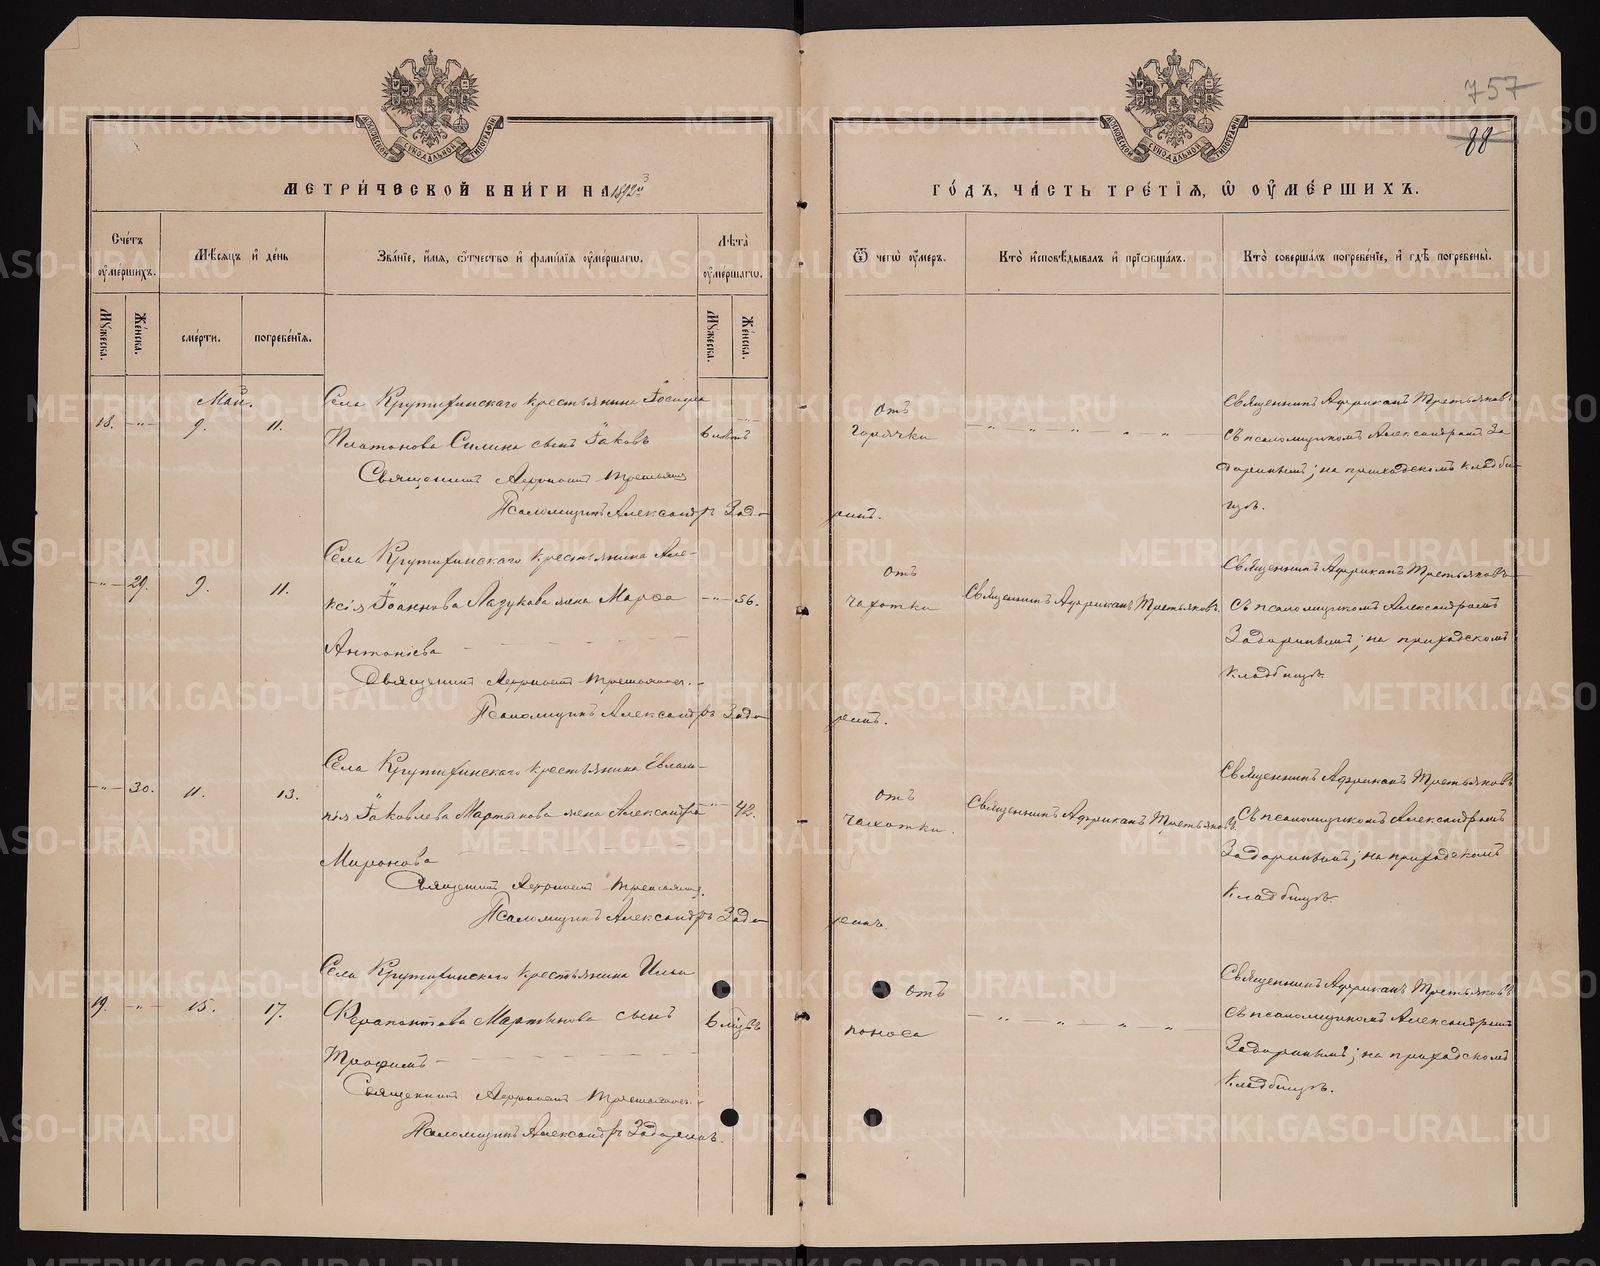 757
88
МОСКОВСКОЙ СѴНОДАЛЬНОЙ ТИПОГРАФІИ
МОСКОВСКОЙ СѴНОДАЛЬНОЙ ТИПОГРАФІИ
МЕТРИ́ЧЕСКОЙ КНИ́ГИ НА 1892й
ГО́ДЪ, ЧА́СТЬ ТРЕ́ТІѦ, Ѡ ОУМЕ́РШИХЪ.
Сче́тъ оумершихъ.
Мѣсяцъ и день
Званіе, имя, отчество и фамилія оумершагѡ.
Лѣта оумершагѡ.
Ѿ чегѡ оумеръ.
Кто исповѣдывалъ и пріобщалъ.
Кто совершалъ погребеніе, и гдѣ погребены.
Мужеска.
Женска.
смерти.
погребенія.
Мужеска.
Женска.
Май.
18. -„- 9. 11.
Села Крутихинскаго крестьянина Іосифа
Платонова Силина сынъ Іаковъ
6 лѣтъ
Священникъ Африканъ Третьяковъ
Псаломщикъ Александръ Задоринъ.
отъ
горячки
Священникъ Африканъ Третьяковъ
съ псаломщикомъ Александромъ За
доринымъ; на приходскомъ кладби
щѣ.
-„- 29. 9. 11.
Села Крутихинскаго крестьянина Але-
ксія Іоаннова Лазукова жена Марѳа
Антоніева
-„- 56.
Священникъ Африканъ Третьяковъ.
Псаломщикъ Александръ Задоринъ.
отъ
чахотки
Священникъ Африканъ Третьяковъ.
Священникъ Африканъ Третьяковъ
съ псаломщикомъ Александромъ
Задоринымъ; на приходскомъ
кладбищѣ.
-„- 30. 11. 13.
Села Крутихинскаго крестьянина Евлам-
пія Іаковлева Мартынова жена Александра
Миронова
-„- 42.
Священникъ Африканъ Третьяковъ.
Псаломщикъ Александръ Задоринъ.
отъ
чахотки.
Священникъ Африканъ Третьяковъ.
Священникъ Африканъ Третьяковъ
съ псаломщикомъ Александромъ
Задоринымъ; на приходскомъ
кладбищѣ.
19. -„- 15. 17.
Села Крутихинскаго крестьянина Ильи
Ферапонтова Мартынова сынъ
Трофимъ
6 мѣцъ
Священникъ Африканъ Третьяковъ.
Псаломщикъ Александръ Задоринъ.
отъ
поноса
Священникъ Африканъ Третьяковъ
съ псаломщикомъ Александромъ
Задоринымъ; на приходскомъ
кладбищѣ.
METRIKI.GASO-URAL.RU